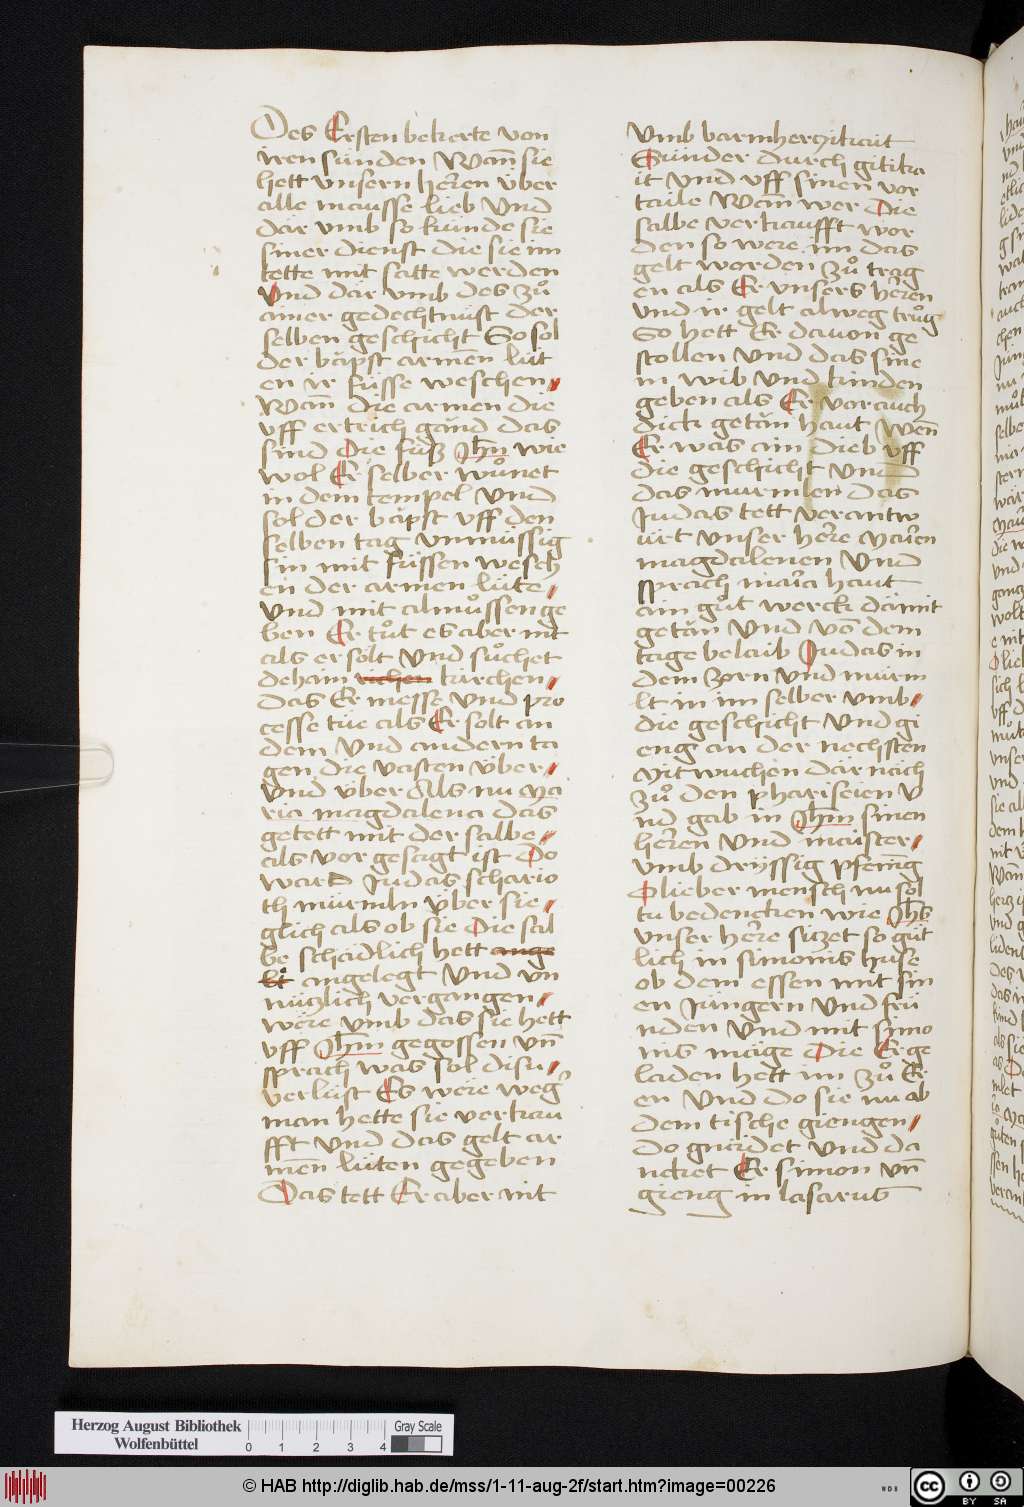 Des Ersten bekerte von
iren sünden Wan̄ sie
hett vnsern herren über
alle mausse lieb Vnd
dar vmb so kunde sie
siner dienst die sie im
tette mit satte werden
Vnd dar vmb des zů
ainer gedechtnust der
selben geschicht So sol
der bäpst armen̄ lüt
en ir füsse weschen
Wan̄ die armen die
vff ertrich gand das
sind Die füß Jh̄n wie
wol Er selber wůnet
in dem tempel Vnd
sol der bäpst vff den
selben tag vnmüssig
sin mit füssen wesch
en der armen lüte
Vnd mit almůssen ge
ben Er tůt es aber nit
als er sölt Vnd sůchet
dehain kirchen
das Er messe Vnd pro
cesse tüe als Er solt an
dem Vnd andern ta
gen die vasten Über
Vnd Über Als nu Ma
ria magdalena das
getett mit der salbe
als vor gesagt ist Do
ward Judas schario
th mürmln Über sie
glich als ob sie Die sal
be schädlich hett ange
lt angelegt Vnd vn̄
nützlich vergangen
were Vmb das sie hett
vff Jh̄m gegossen vn̄
sprach was sol disu
verlust Es were weg
man hette sie verkau
fft Vnd das gelt ar
men̄ lüten gegeben
Das tett Er aber nit
Vmb barmhertzikait
Sunder durch gitika
it Vnd Vff sinen vor
taile Wan̄ wer Die
salbe verkaufft wor
den so were im das
gelt worden zů trag
en als Er vnsers herren
vnd ir gelt alweg trůg
So hett Er dauon ge
stollen Vnd das sine
m wib Vnd kinden
geben als Er vor auch
dick getän haut Wen̄
Er was ain dieb vff
die geschicht Vnd
das murmlen das
Judas tett verantw
urt vnser herre Marien
magdalenen Vnd
sprach maria haut
ain gůt werck dämit
getän Vnd vo̅ dem
tage belaib Judas in
dem zorn Vnd mürm
lt in im selber vmb
die geschicht Vnd gi
eng an der nechsten
Mitwuchen där näch
zů den phariseien V
nd gab in Jh̄m sinen
herren Vnd maister
vmb dryssig pfening
O lieber mensch nu sol
tu bedencken wie Jh̄s
vnser herre sitzet so güt
lich in simonis huse
ob dem essen mit sin
en Jüngern Vnd frü
nden Vnd mit simo
nis mäge Die Er ge
laden hett im zů Er
en Vnd do sie nu ab
dem tische giengen
do gnädet Vnd da
ncket Er simon vn̄
gieng in lasarus
Herzog August Bibliothek
Wolfenbüttel
0 1 2 3 4
Gray Scale
© HAB http://diglib.hab.de/mss/1-11-aug-2f/start.htm?image=00226
WDB
cc
BY SA